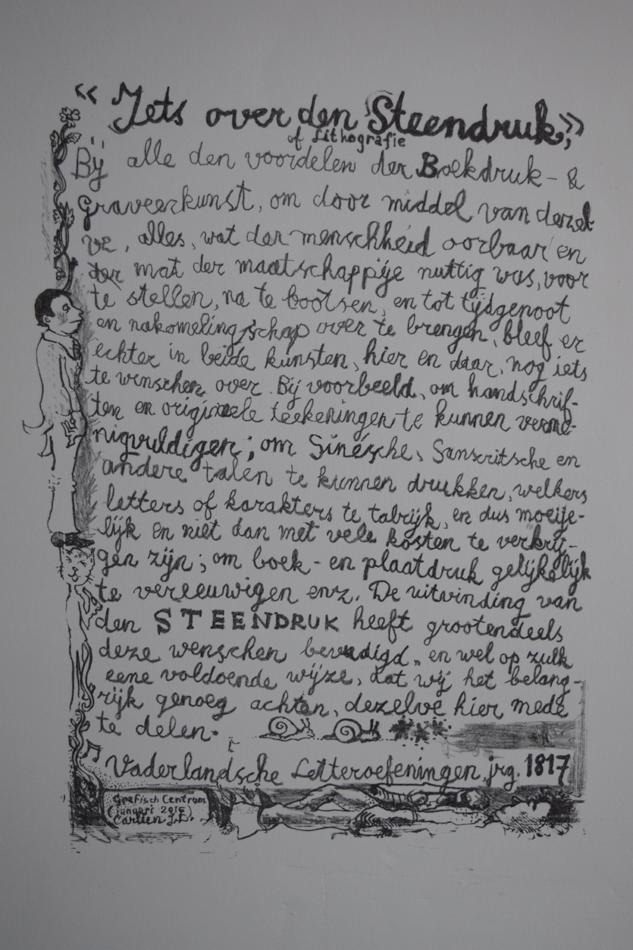 « Iets over den Steendruk,»
of Lithografie
Bij alle den voordelen der Boekdruk- &
graveerkunst, om door middel van dezel-
ve, alles, wat der menschheid oorbaar en
der mat der maatschappije nuttig was, voor
te stellen, na te bootsen, en tot tijdgenoot
en nakomelingschap over te brengen, bleef er
echter in beide kunsten, hier en daar, nog iets
te wenschen over. Bij voorbeeld, om handschrif-
ten en origineele teekeningen te kunnen verme-
nigvuldigen; om Sinésche, Sanscritsche en
andere talen te kunnen drukken, welkers
letters of karakters te talrijk, en dus moeije-
lijk en niet dan met vele kosten te verkrij-
gen zijn; om boek- en plaatdruk gelijkelijk
te vereeuwigen enz. De uitvinding van
den STEENDRUK heeft grootendeels
deze wenschen bevredigd, en wel op zulk
eene voldoende wijze, dat wij het belang-
rijk genoeg achten, dezelve hier mede
te delen.
Vaderlandsche Letteroefeningen, jrg. 1817
Grafisch Centrum
januari 2016